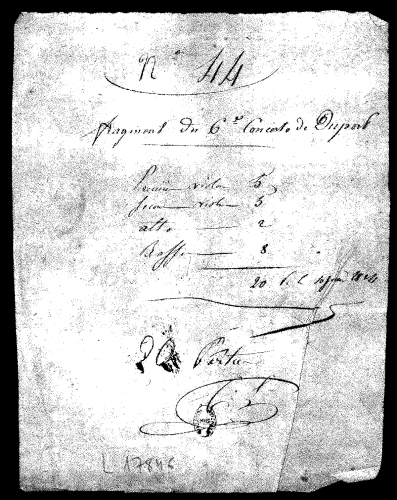 N° 44
Fragment du 6e Concerto de Duport
Premier violon 5
Second violon 5
alto 2
Basse 8
20
Partie
L 17846